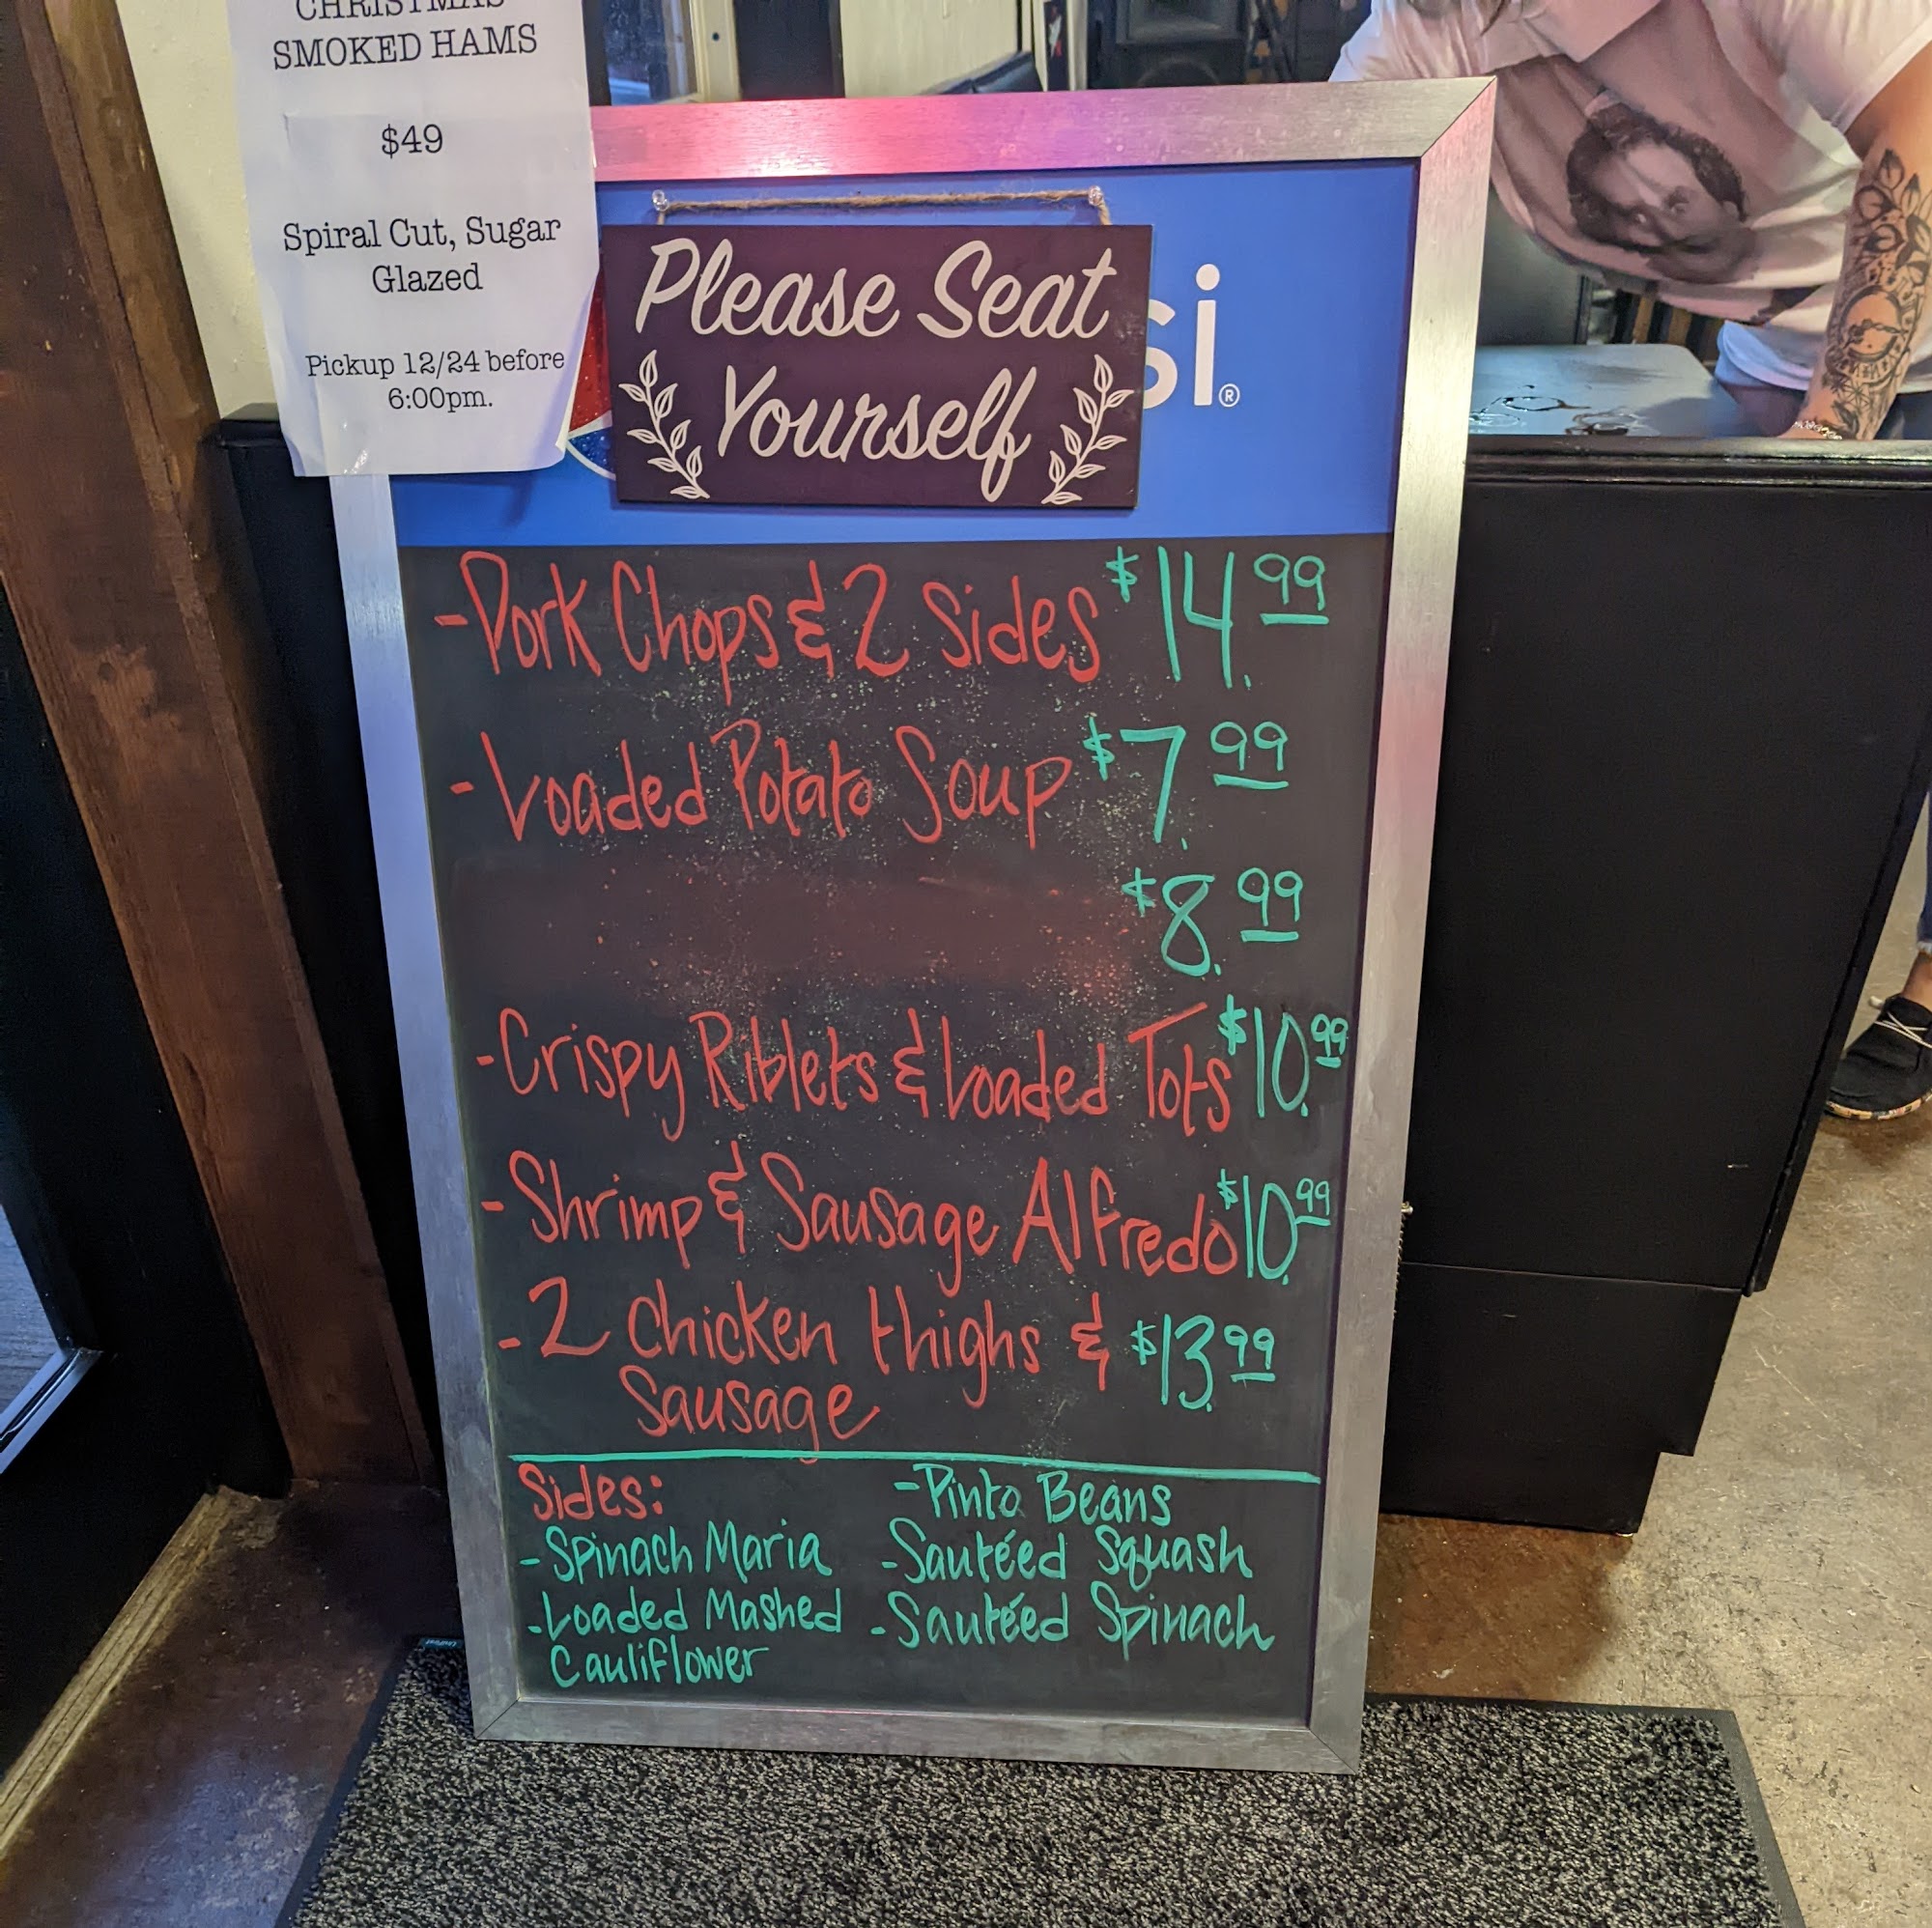 CHRISTMAS
SMOKED HAMS
$49
Spiral Cut, Sugar
Glazed
Pickup 12/24 before
6:00pm.
Please Seat
Yourself
si®
-Pork Chops & 2 Sides $14.99
-Loaded Potato Soup $7.99
$8.99
-Crispy Riblets & Loaded Tots $10.99
-Shrimp & Sausage Alfredo $10.99
-2 Chicken thighs & $13.99
Sausage
Sides:
-Spinach Maria
-Loaded Mashed
Cauliflower
-Pinto Beans
-Sautéed Squash
-Sautéed Spinach